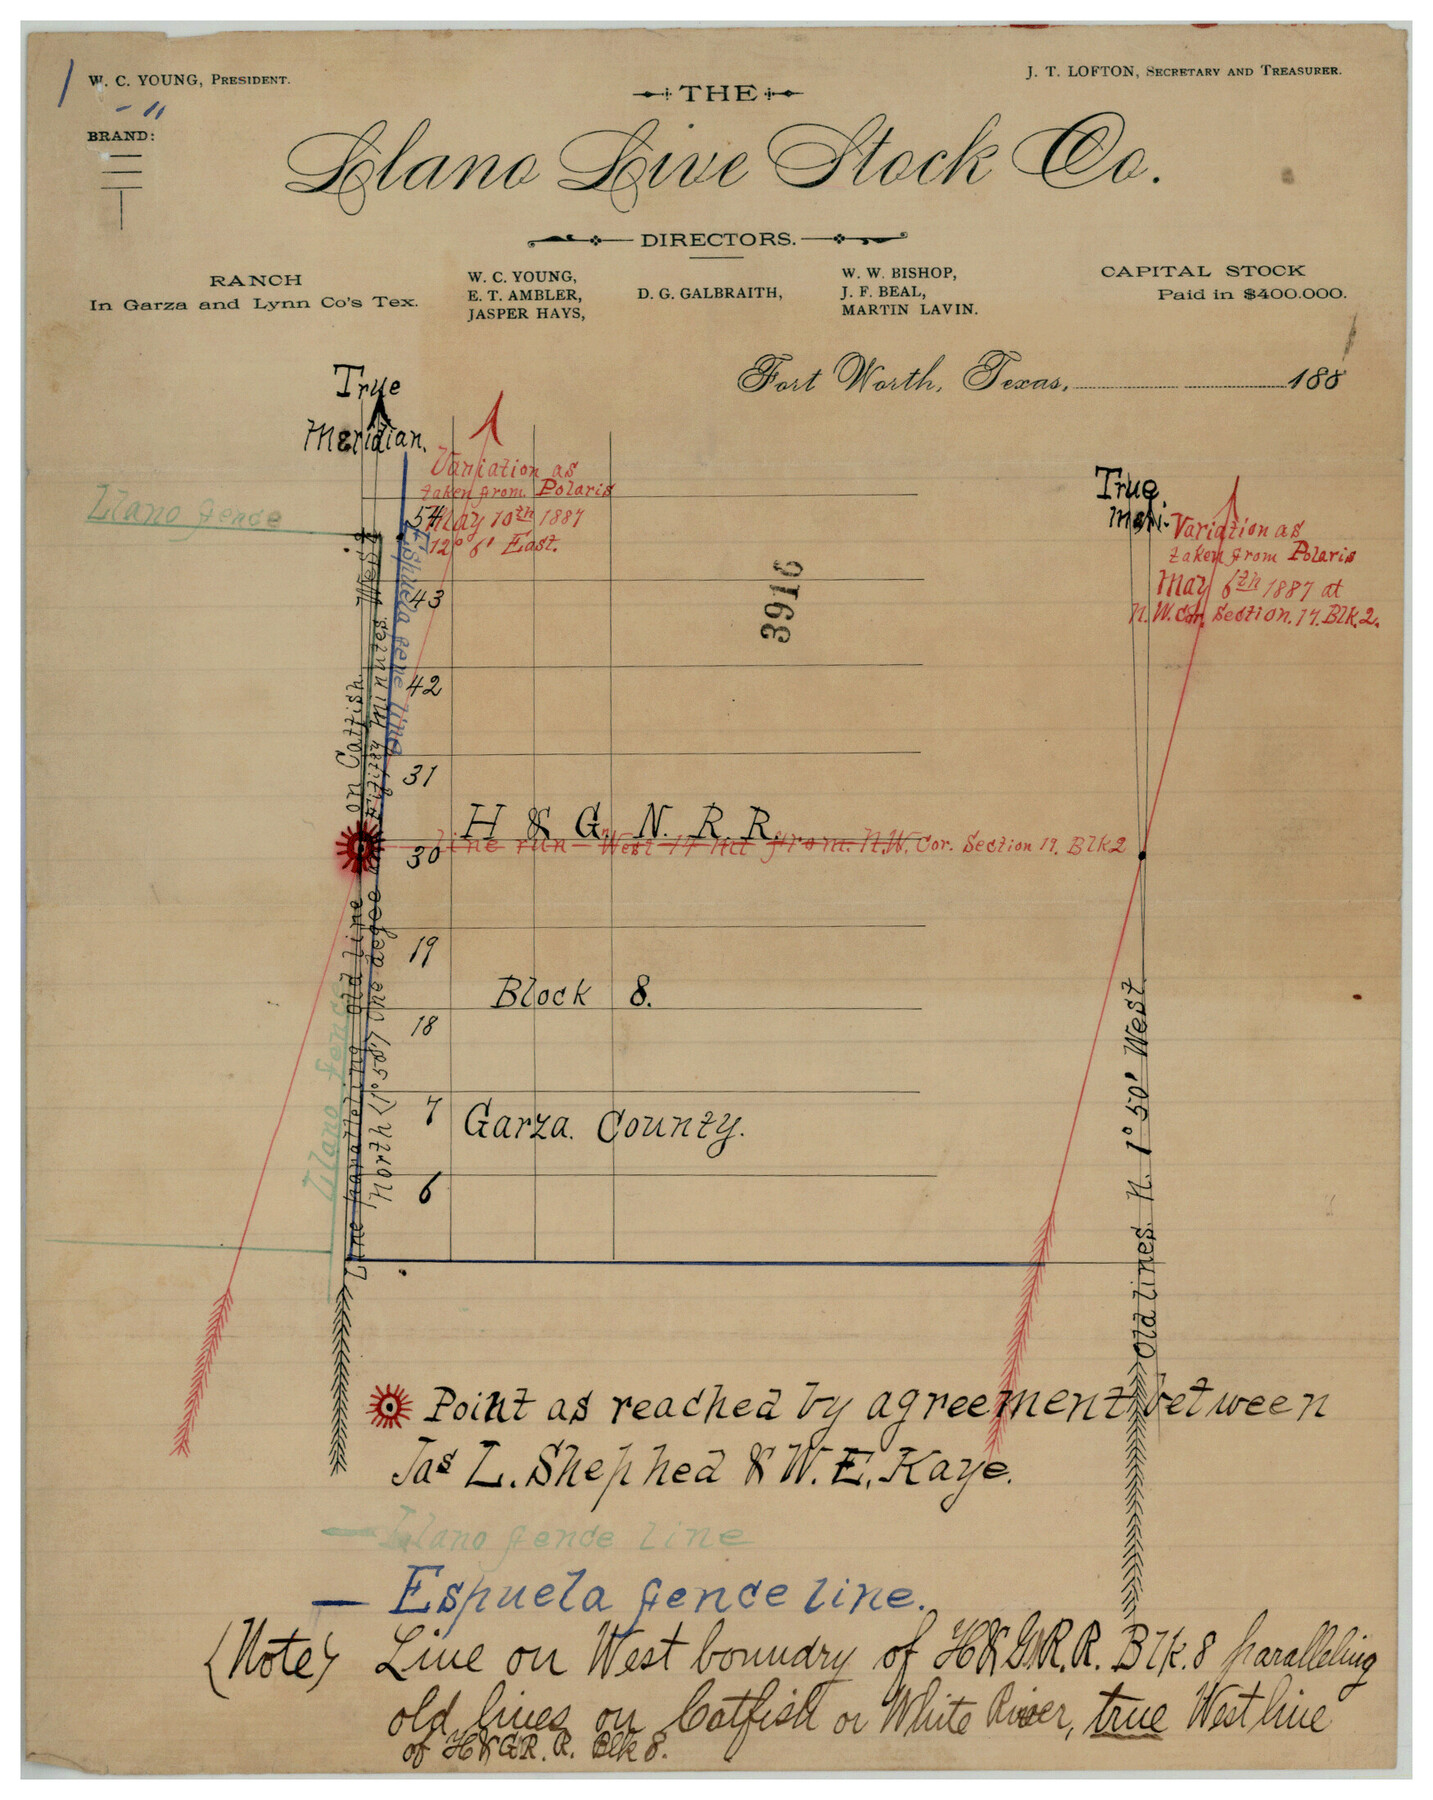 W. C. YOUNG, PRESIDENT.
J. T. LOFTON, SECRETARY AND TREASURER.
THE
BRAND:
Llano Live Stock Co.
DIRECTORS.
RANCH
In Garza and Lynn Co's Tex.
W. C. YOUNG,
E. T. AMBLER,
JASPER HAYS,
D. G. GALBRAITH,
W. W. BISHOP,
J. F. BEAL,
MARTIN LAVIN.
CAPITAL STOCK
Paid in $400.000.
Fort Worth, Texas, 188
True
Meridian.
Variation as
taken from Polaris
May 10th 1887
12° 6' East.
Llano fence
True
Meri.
Variation as
taken from Polaris
May 6th 1887 at
N.W. Cor. Section. 17. Blk. 2.
3916
54
43
42
31
30
19
18
7
6
Espuela fence line
H & G. N. R. R.
Line run West 17 Mi from N.W. Cor. Section 17. Blk 2
Block 8.
Garza. County.
Line paralleling old line on Catfish
North (1° 55') one degree and fifty five minutes West
Llano fence
Old lines N. 1° 50' West
Point as reached by agreement between
Jas L. Shephed & W. E. Kaye.
Llano fence line
Espuela fence line.
(Note) Line on West boundry of H&GN.R.R. Blk. 8 paralleling
old lines on Catfish or White River, true West line
of H&GR. R. Blk 8.